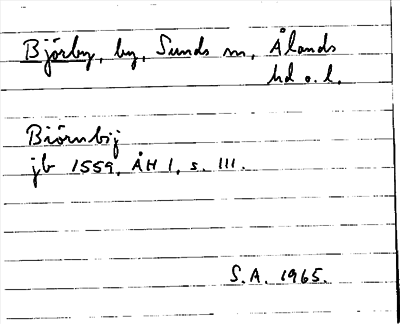 Björby, by, Sunds sn, Ålands
hd o. l.
Biörnbij
jb 1559, ÅH I, s. 111.
S.A. 1965.